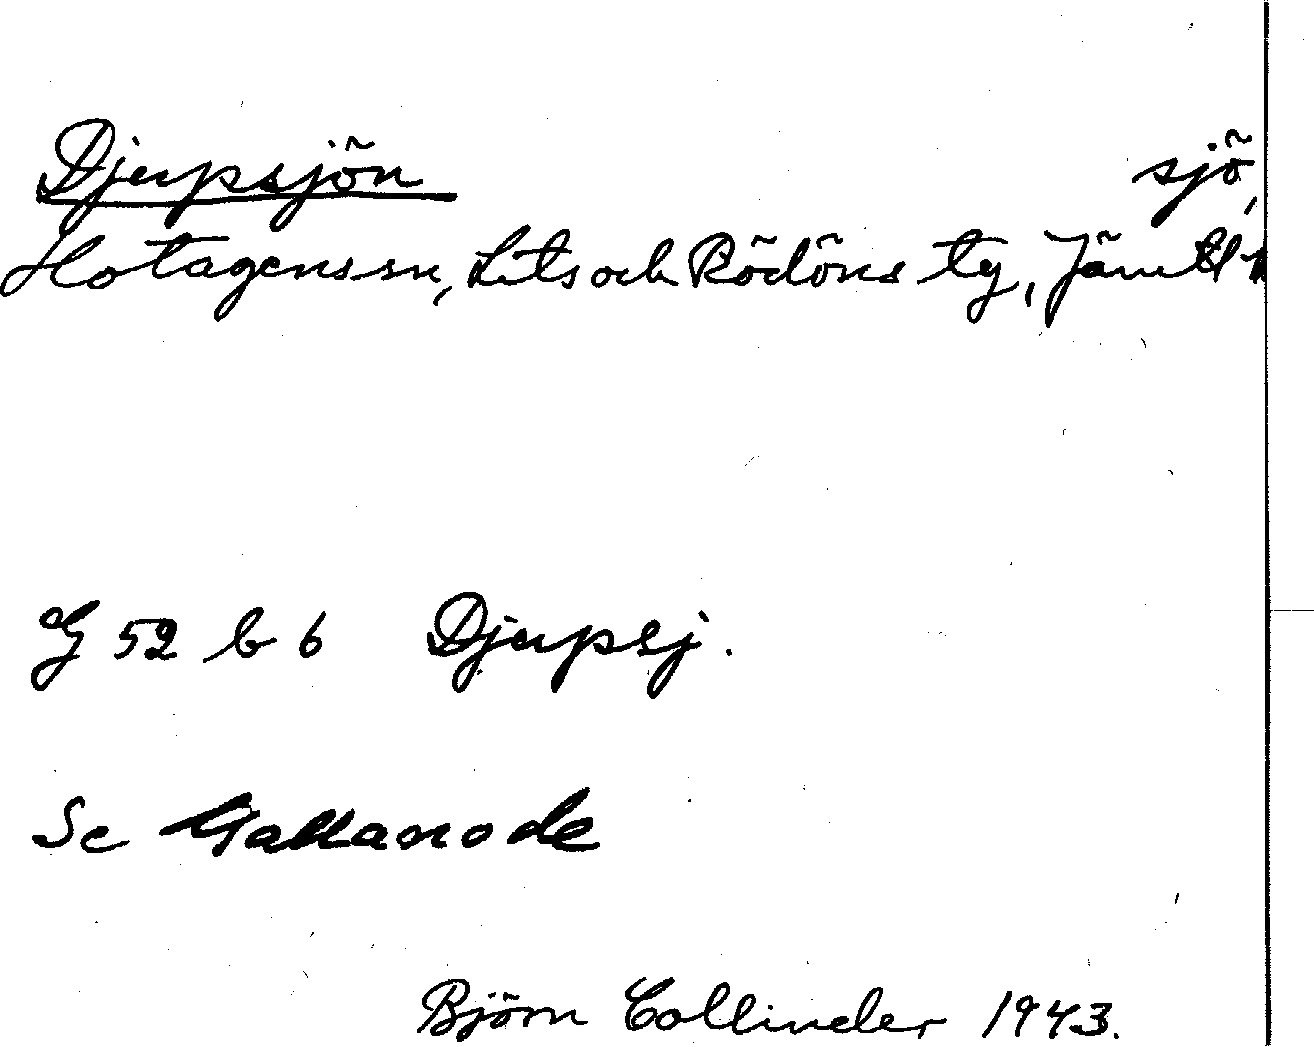 Djupsjön sjö,
Hotagens sn, Lits och Rödöns tg, Jämtl
G 52 b 6 Djupsj.
Se
Björn Collinder 1943.